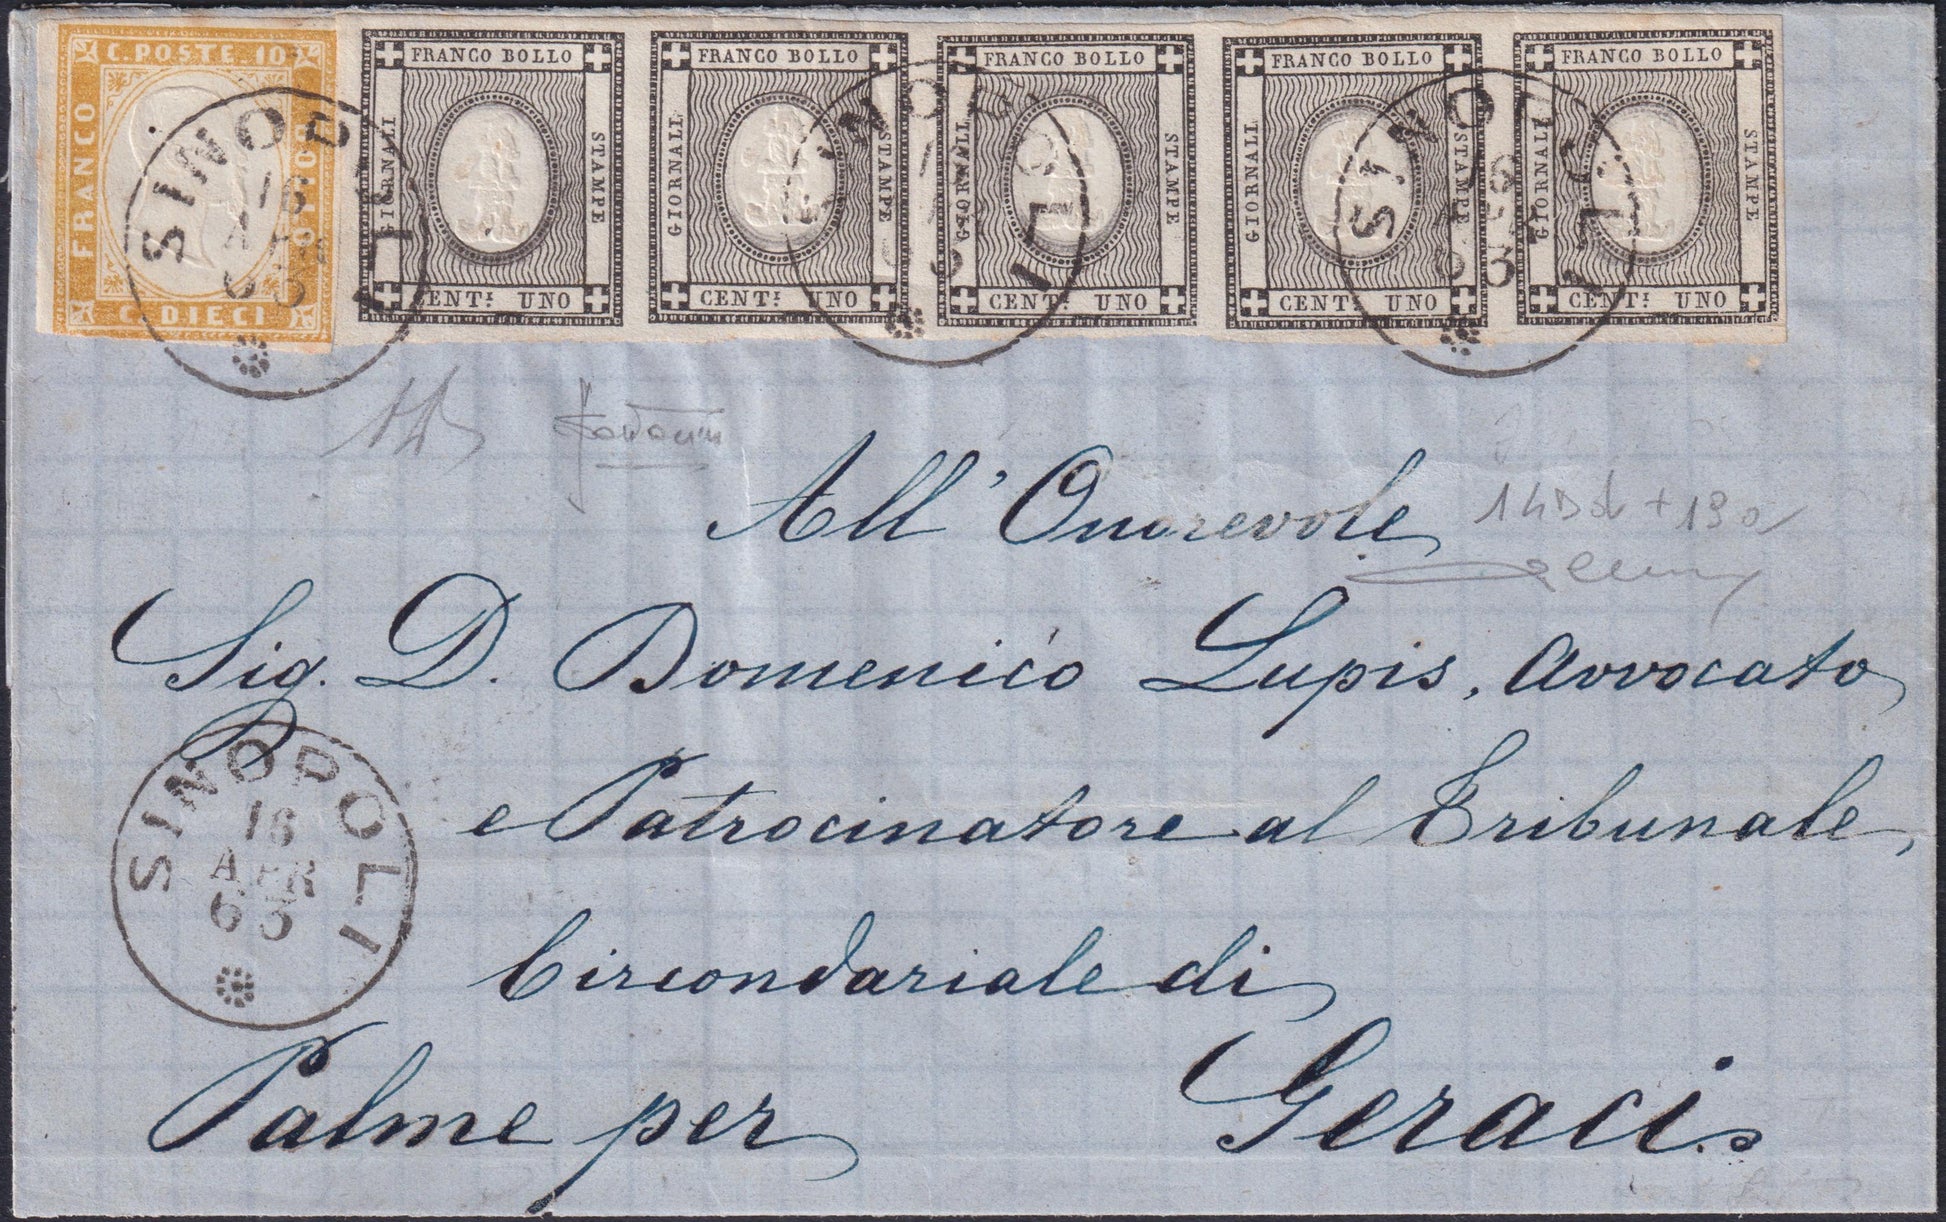 C. POSTE. 10
FRANCO
BOLLO
C. DIECI
FRANCO BOLLO
GIORNALI
STAMPE
CENT: UNO
FRANCO BOLLO
GIORNALI
STAMPE
CENT: UNO
FRANCO BOLLO
GIORNALI
STAMPE
CENT: UNO
FRANCO BOLLO
GIORNALI
STAMPE
CENT: UNO
FRANCO BOLLO
GIORNALI
STAMPE
CENT: UNO
SINOPOLI
16
APR
63
SINOPOLI
SINOPOLI
63
All' Onorevole
Sig. D. Domenico Lupis, Avvocato
e Patrocinatore al Tribunale
Circondariale di
Palme per Geraci.
SINOPOLI
16
APR
63